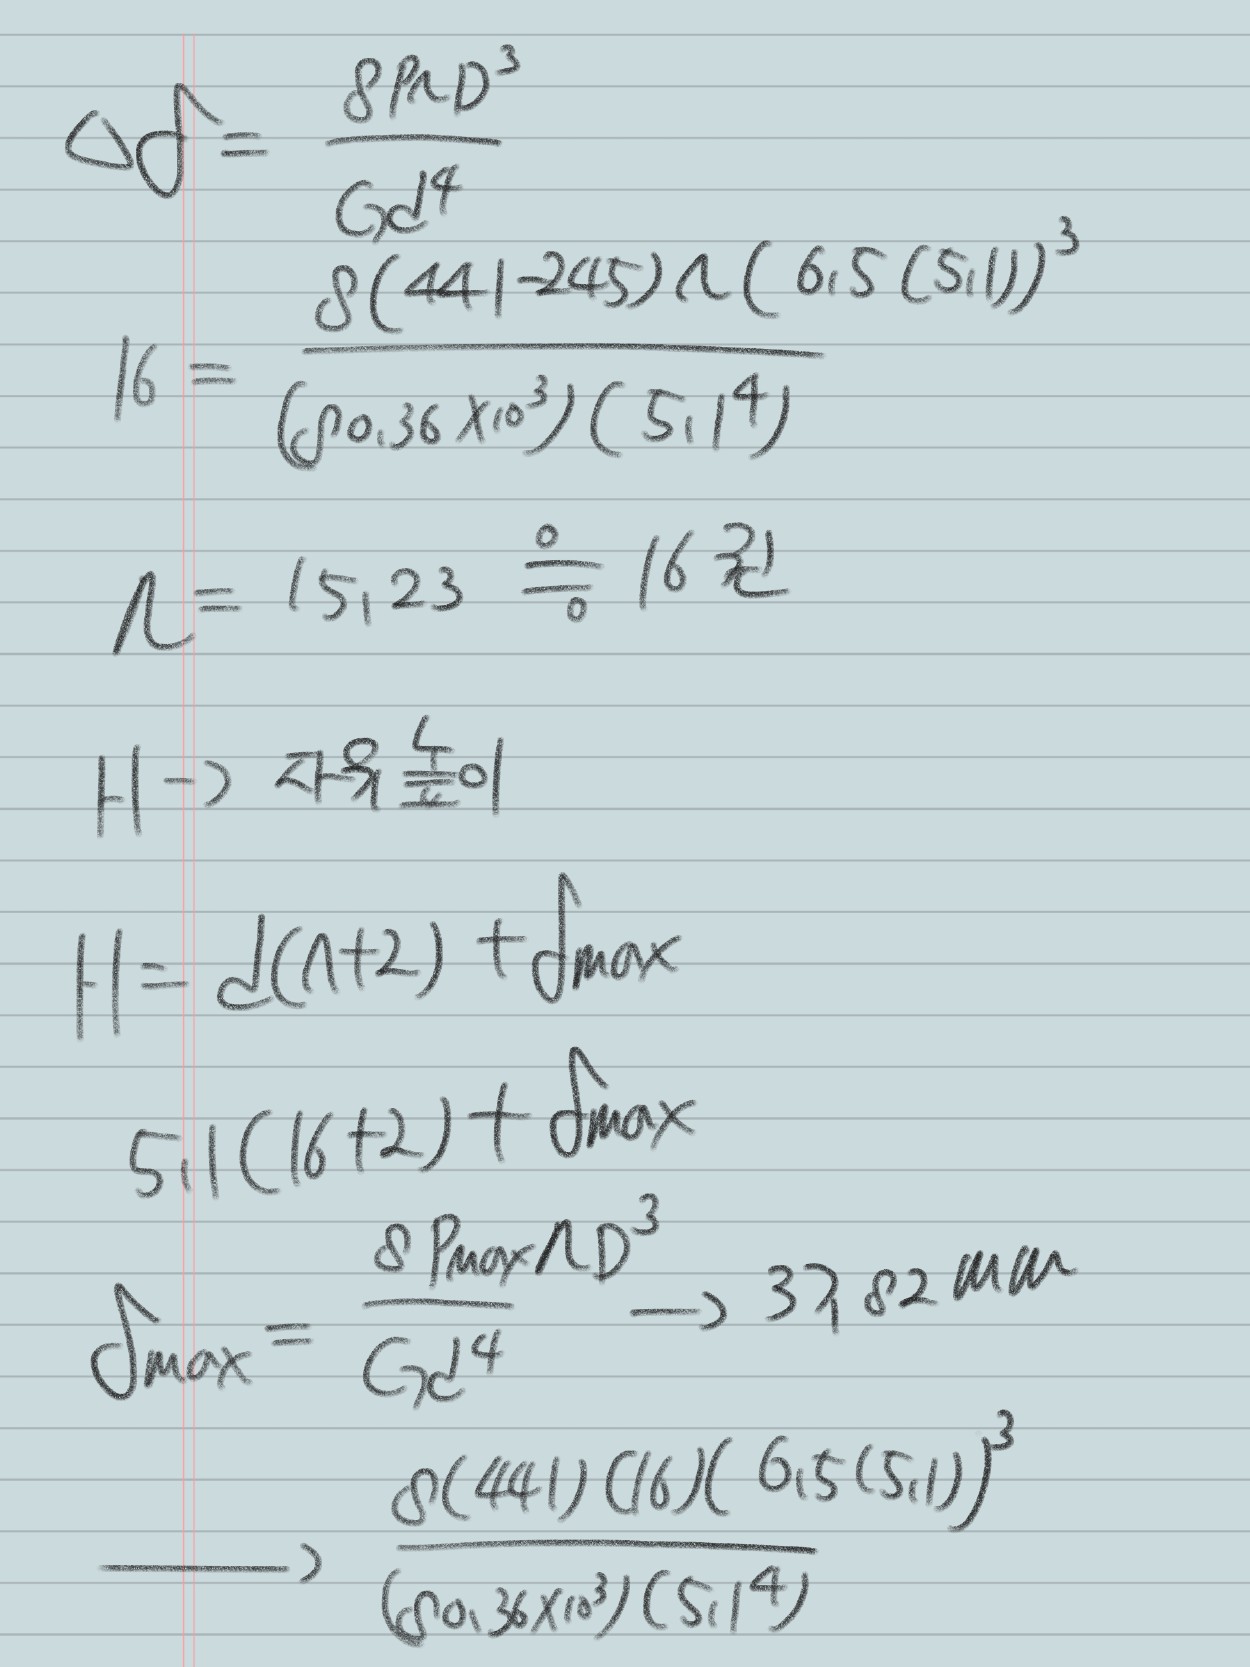 Δδ = 8PnD³ / Gd⁴
16 = 8(441-245)n(6.5(5.1))³ / (80.36×10³)(5.1⁴)
n = 15.23 ≒ 16권
H → 자유높이
H = d(n+2) + δmax
5.1(16+2) + δmax
δmax = 8PmaxnD³ / Gd⁴ → 37.82mm
→ 8(441)(16)(6.5(5.1))³ / (80.36×10³)(5.1⁴)